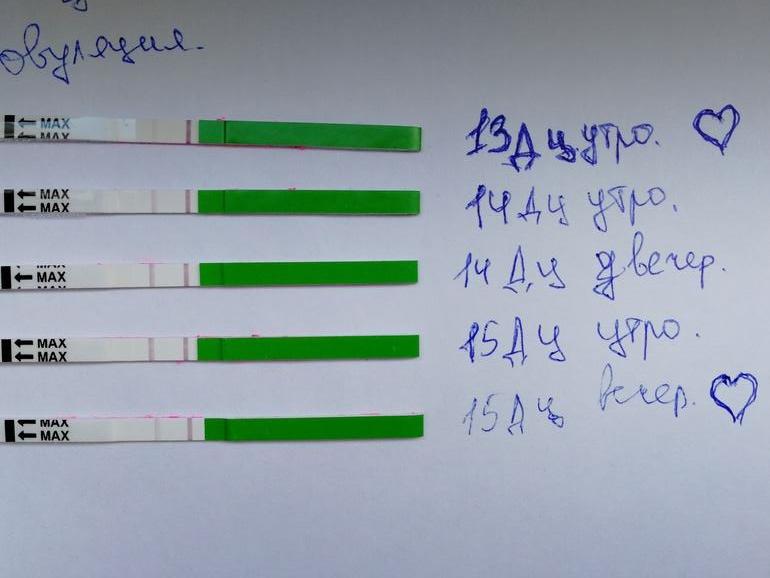 овуляция.
MAX
MAX
13 Дц утро.
MAX
MAX
14 Дц утро.
MAX
14 Дц вечер.
MAX
MAX
15 Дц утро.
MAX
MAX
15 Дц вечер.